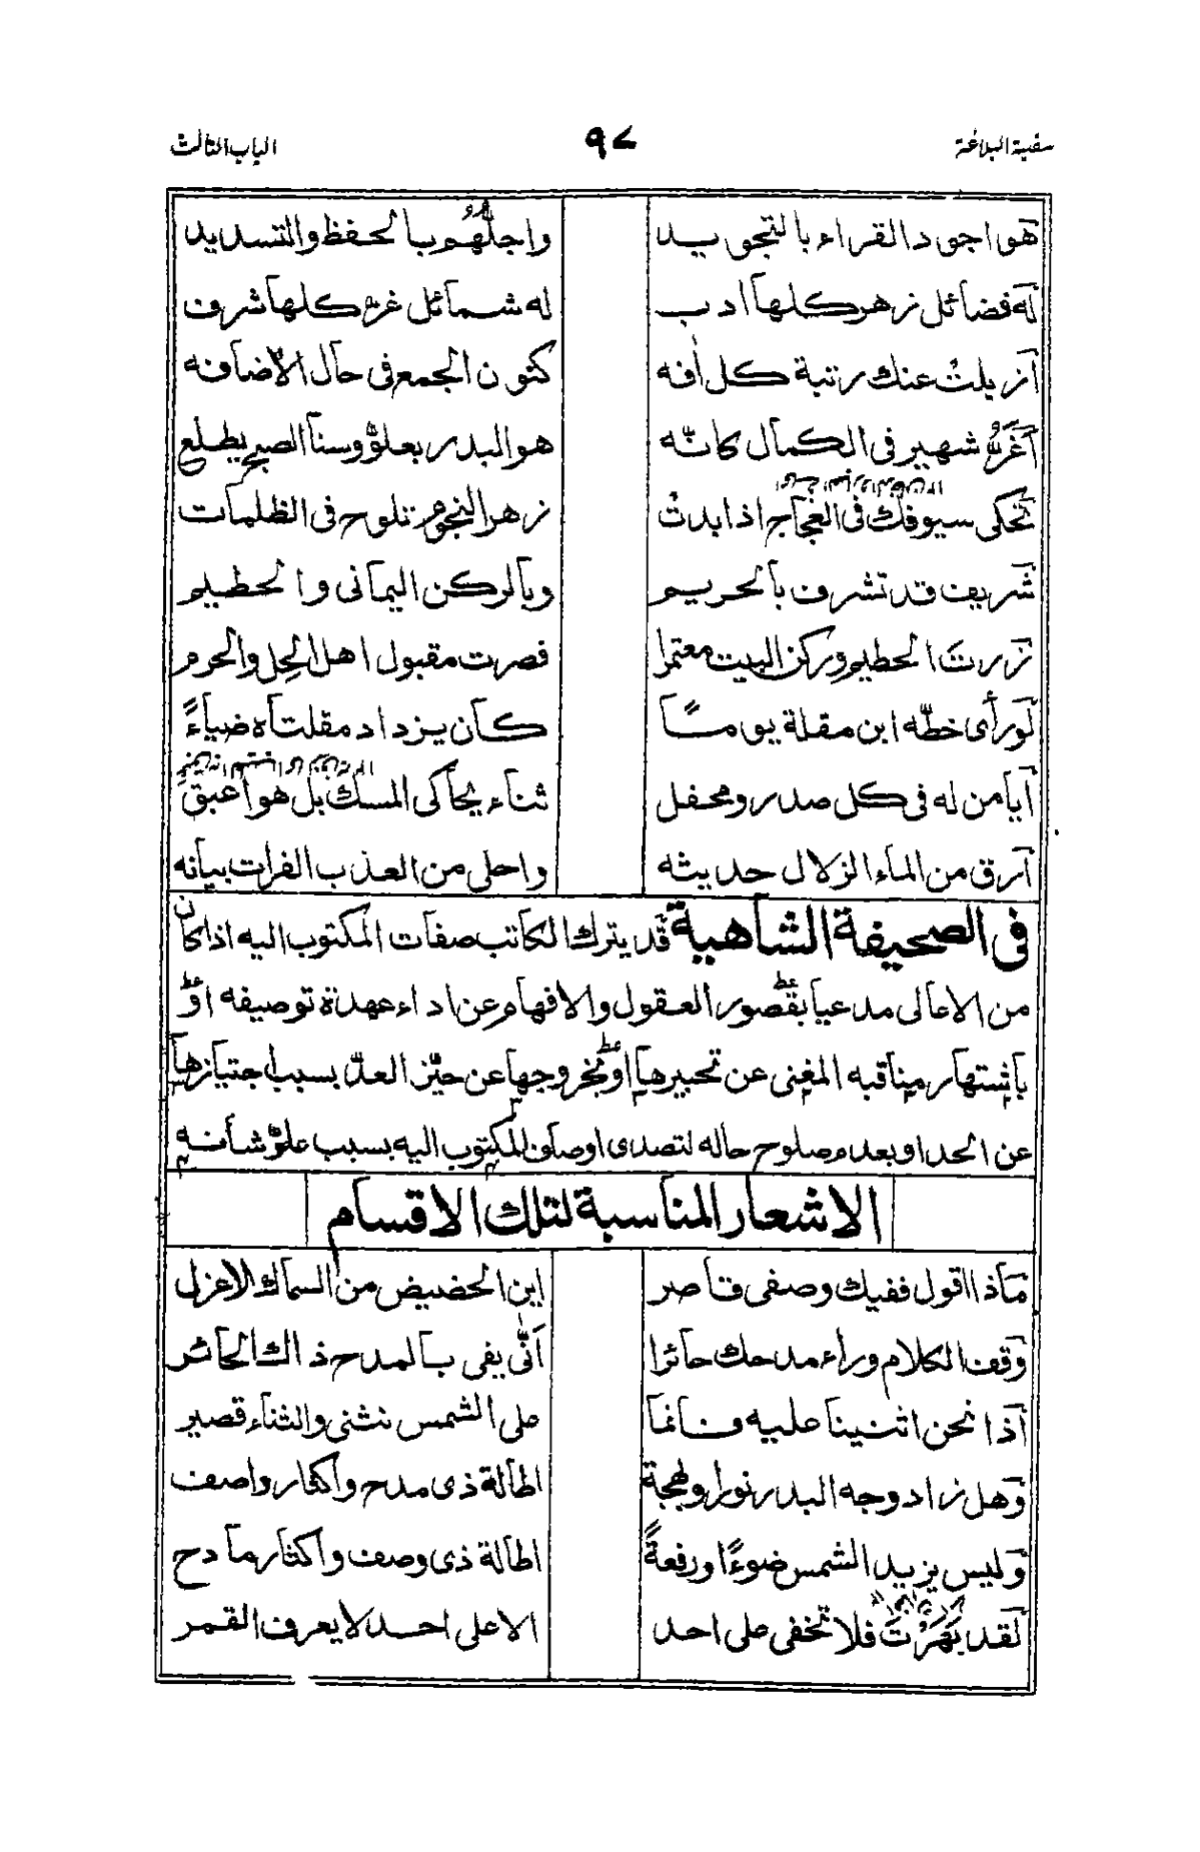 سفينة البلاغة ٩٧ الباب الثالث
هو اجود القراء بالتجويد واجلّهُم بالحفظ والتسديد
له فضائل زهر كلها ادب له شمائل غرّ كلها شرف
ازيلت عنك رتبة كل افه كنون الجمع فى حال الاضافه
اَغَرُّ شهير فى الكمال كانّه هو البدر بعلوّ وسنا الصبح يطلع
تحكى سيوفك فى العجاج اذا بدت زهر النجوم تلوح فى الظلمات
شريف قد تشرف بالحريم وبالركن اليمانى والحطيم
زرت الحطيم وركن البيت معتمرا فصرت مقبول اهل الحِل والحرم
لو رأى خطّه ابن مقلة يومًا كان يزداد مقلتاه ضياءً
ايا من له فى كل صدر ومحفل ثناء يحاكى المسك بل هو اعبق
ارق من الماء الزلال حديثه واحلى من العذب الفرات بيانه
فى الصحيفة الشاهية قد يترك الكاتب صفات المكتوب اليه اذا كان
من الاعالى مدعيا بقصور العقول والافهام عن اداء عهدة توصيفه او
باشتهار مناقبه المغنى عن تحبيرها او بخروجها عن حيّز العدّ بسبب اجتيازها
عن الحد او بعدم صلوح حاله لتصدى اوصاف المكتوب اليه بسبب علوّ شأنه
الاشعار المناسبة لتلك الاقسام
ماذا اقول ففيك وصفى قاصر اين الحضيض من السماك الاعزل
وقف الكلام وراء مدحك حائرا اَنّٰى يفى بالمدح ذاك الحائر
اذا نحن اثنينا عليه فانما على الشمس نثنى والثناء قصير
وهل زاد وجه البدر نورا وبهجة اطالة ذى مدح واكثار واصف
وليس يزيد الشمس ضوءًا ورفعةً اطالة ذى وصف واكثار مادح
لقد بَهَرْتَ فلا تخفى على احد الا على احد لا يعرف القمر